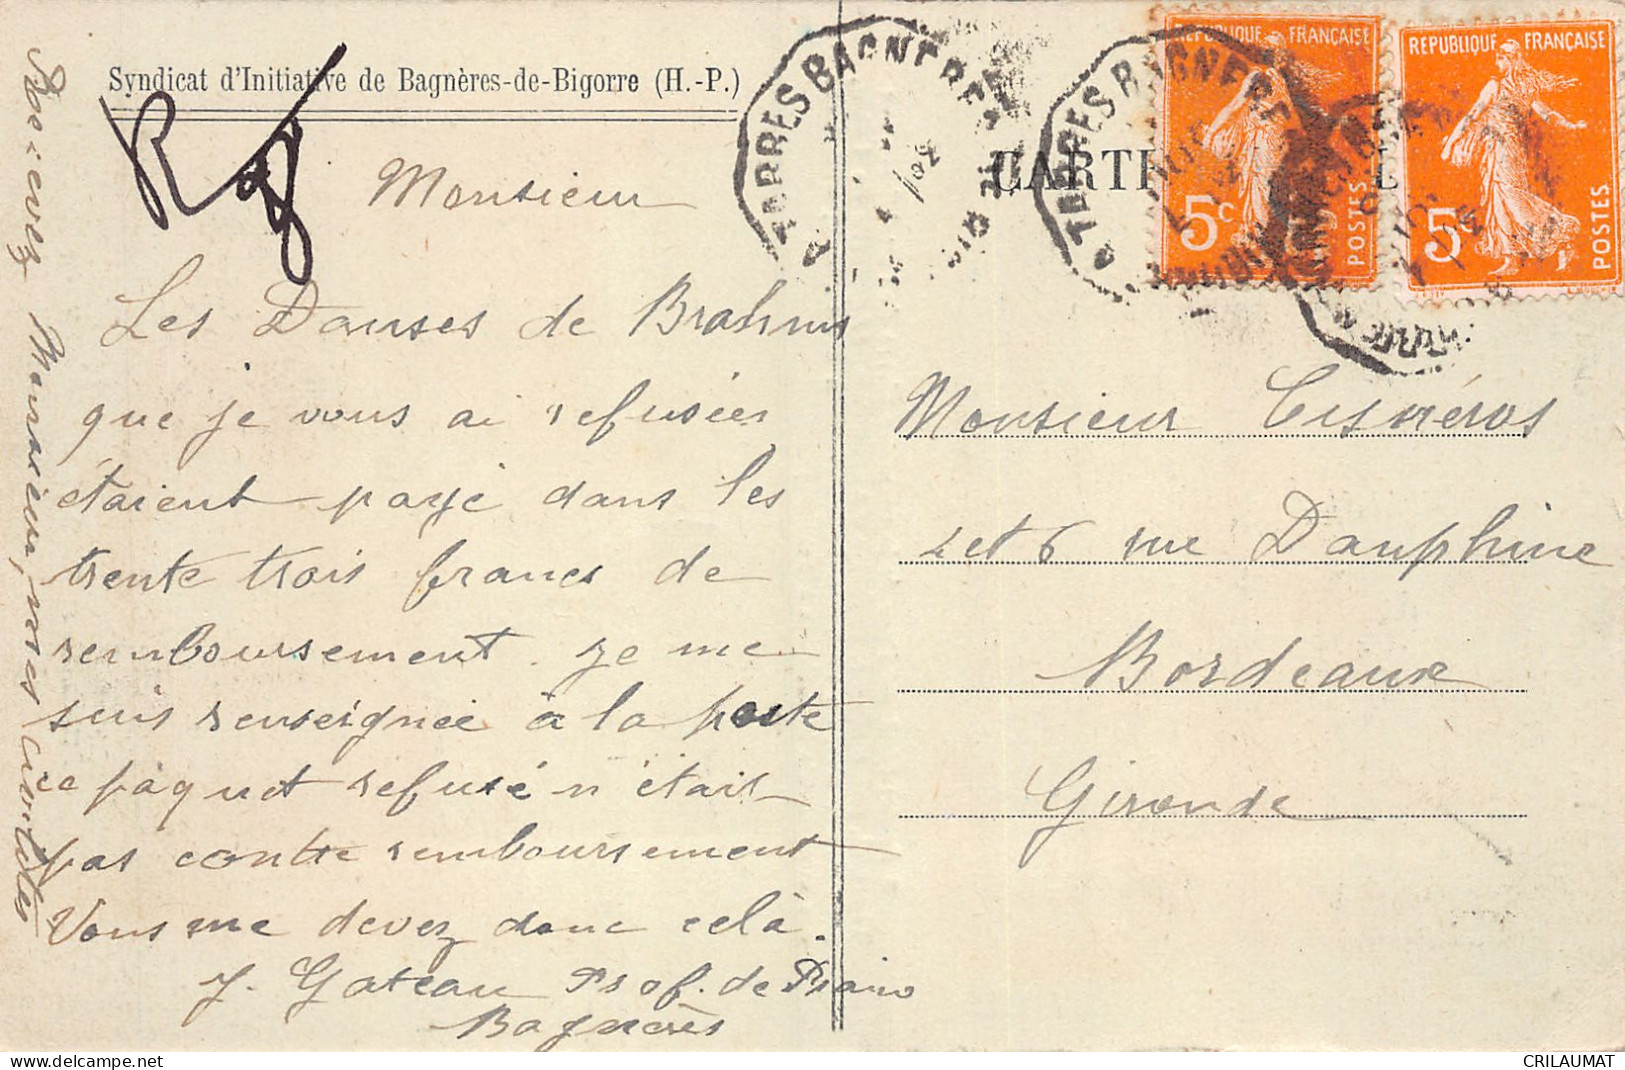 Syndicat d'Initiative de Bagnères-de-Bigorre (H.-P.)
Monsieur
Les Danses de Brahms
que je vous ai refusées
étaient payé dans les
trente trois francs de
remboursement. je me
suis renseignée à la poste
ce paquet refusé n'était
pas contre remboursement
Vous me devez donc celà.
J. Gateau Prof. de Piano
Bagnères
Recevez Monsieur, mes civilités
CARTE
TARBES BAGNERES
TARBES BAGNERES
REPUBLIQUE FRANÇAISE
5c
POSTES
REPUBLIQUE FRANÇAISE
5c
POSTES
Monsieur Cisnéros
et 6 rue Dauphine
Bordeaux
Gironde
delcampe.net
CRILAUMAT